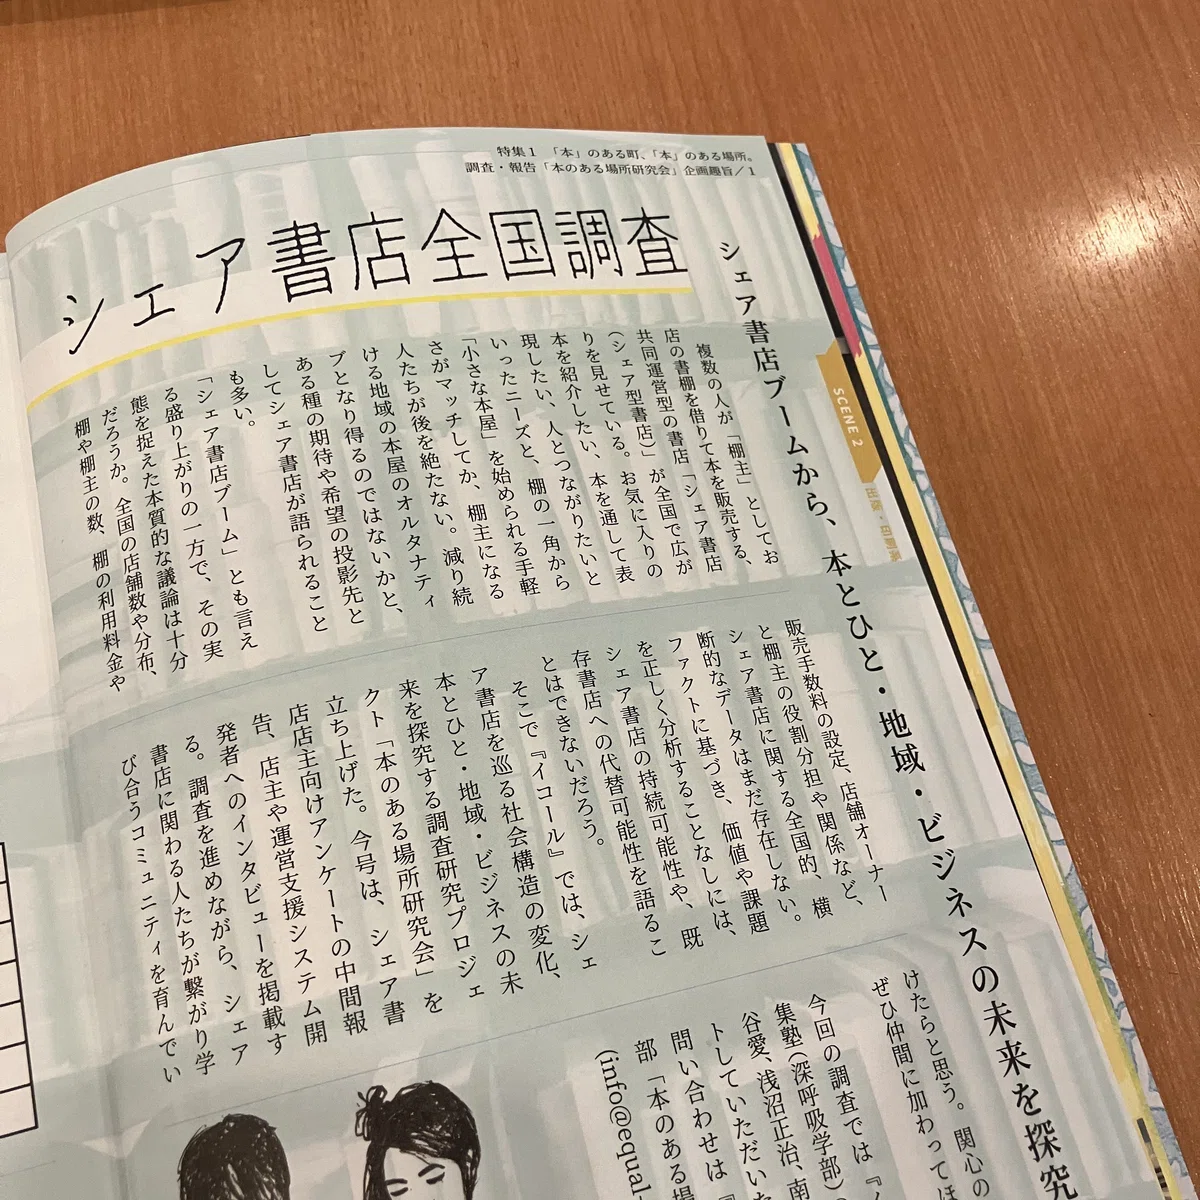 特集1 「本」のある町、「本」のある場所。
調査・報告「本のある場所研究会」企画趣旨/1
シェア書店全国調査
シェア書店ブームから、本とひと・地域・ビジネスの未来を探究
複数の人が「棚主」としてお
店の書棚を借りて本を販売する、
共同運営型の書店「シェア書店
(シェア型書店)」が全国で広が
りを見せている。お気に入りの
本を紹介したい、本を通して表
現したい、人とつながりたいと
いったニーズと、棚の一角から
「小さな本屋」を始められる手軽
さがマッチしてか、棚主になる
人たちが後を絶たない。減り続
ける地域の本屋のオルタナティ
ブとなり得るのではないかと、
ある種の期待や希望の投影先と
してシェア書店が語られること
も多い。
「シェア書店ブーム」とも言え
る盛り上がりの一方で、その実
態を捉えた本質的な議論は十分
だろうか。全国の店舗数や分布、
棚や棚主の数、棚の利用料金や
販売手数料の設定、店舗オーナー
と棚主の役割分担や関係など、
シェア書店に関する全国的、横
断的なデータはまだ存在しない。
ファクトに基づき、価値や課題
を正しく分析することなしには、
シェア書店の持続可能性や、既
存書店への代替可能性を語るこ
とはできないだろう。
そこで『イコール』では、シェ
ア書店を巡る社会構造の変化、
本とひと・地域・ビジネスの未
来を探究する調査研究プロジェ
クト「本のある場所研究会」を
立ち上げた。今号は、シェア書
店店主向けアンケートの中間報
告、店主や運営支援システム開
発者へのインタビューを掲載す
る。調査を進めながら、シェア
書店に関わる人たちが繋がり学
び合うコミュニティを育んでい
けたらと思う。関心の
ぜひ仲間に加わってほ
今回の調査では『イ
集塾(深呼吸学部)の
谷愛、浅沼正治、南
トしていただいた
問い合わせは『
部「本のある場
(info@equal-
SCENE 2